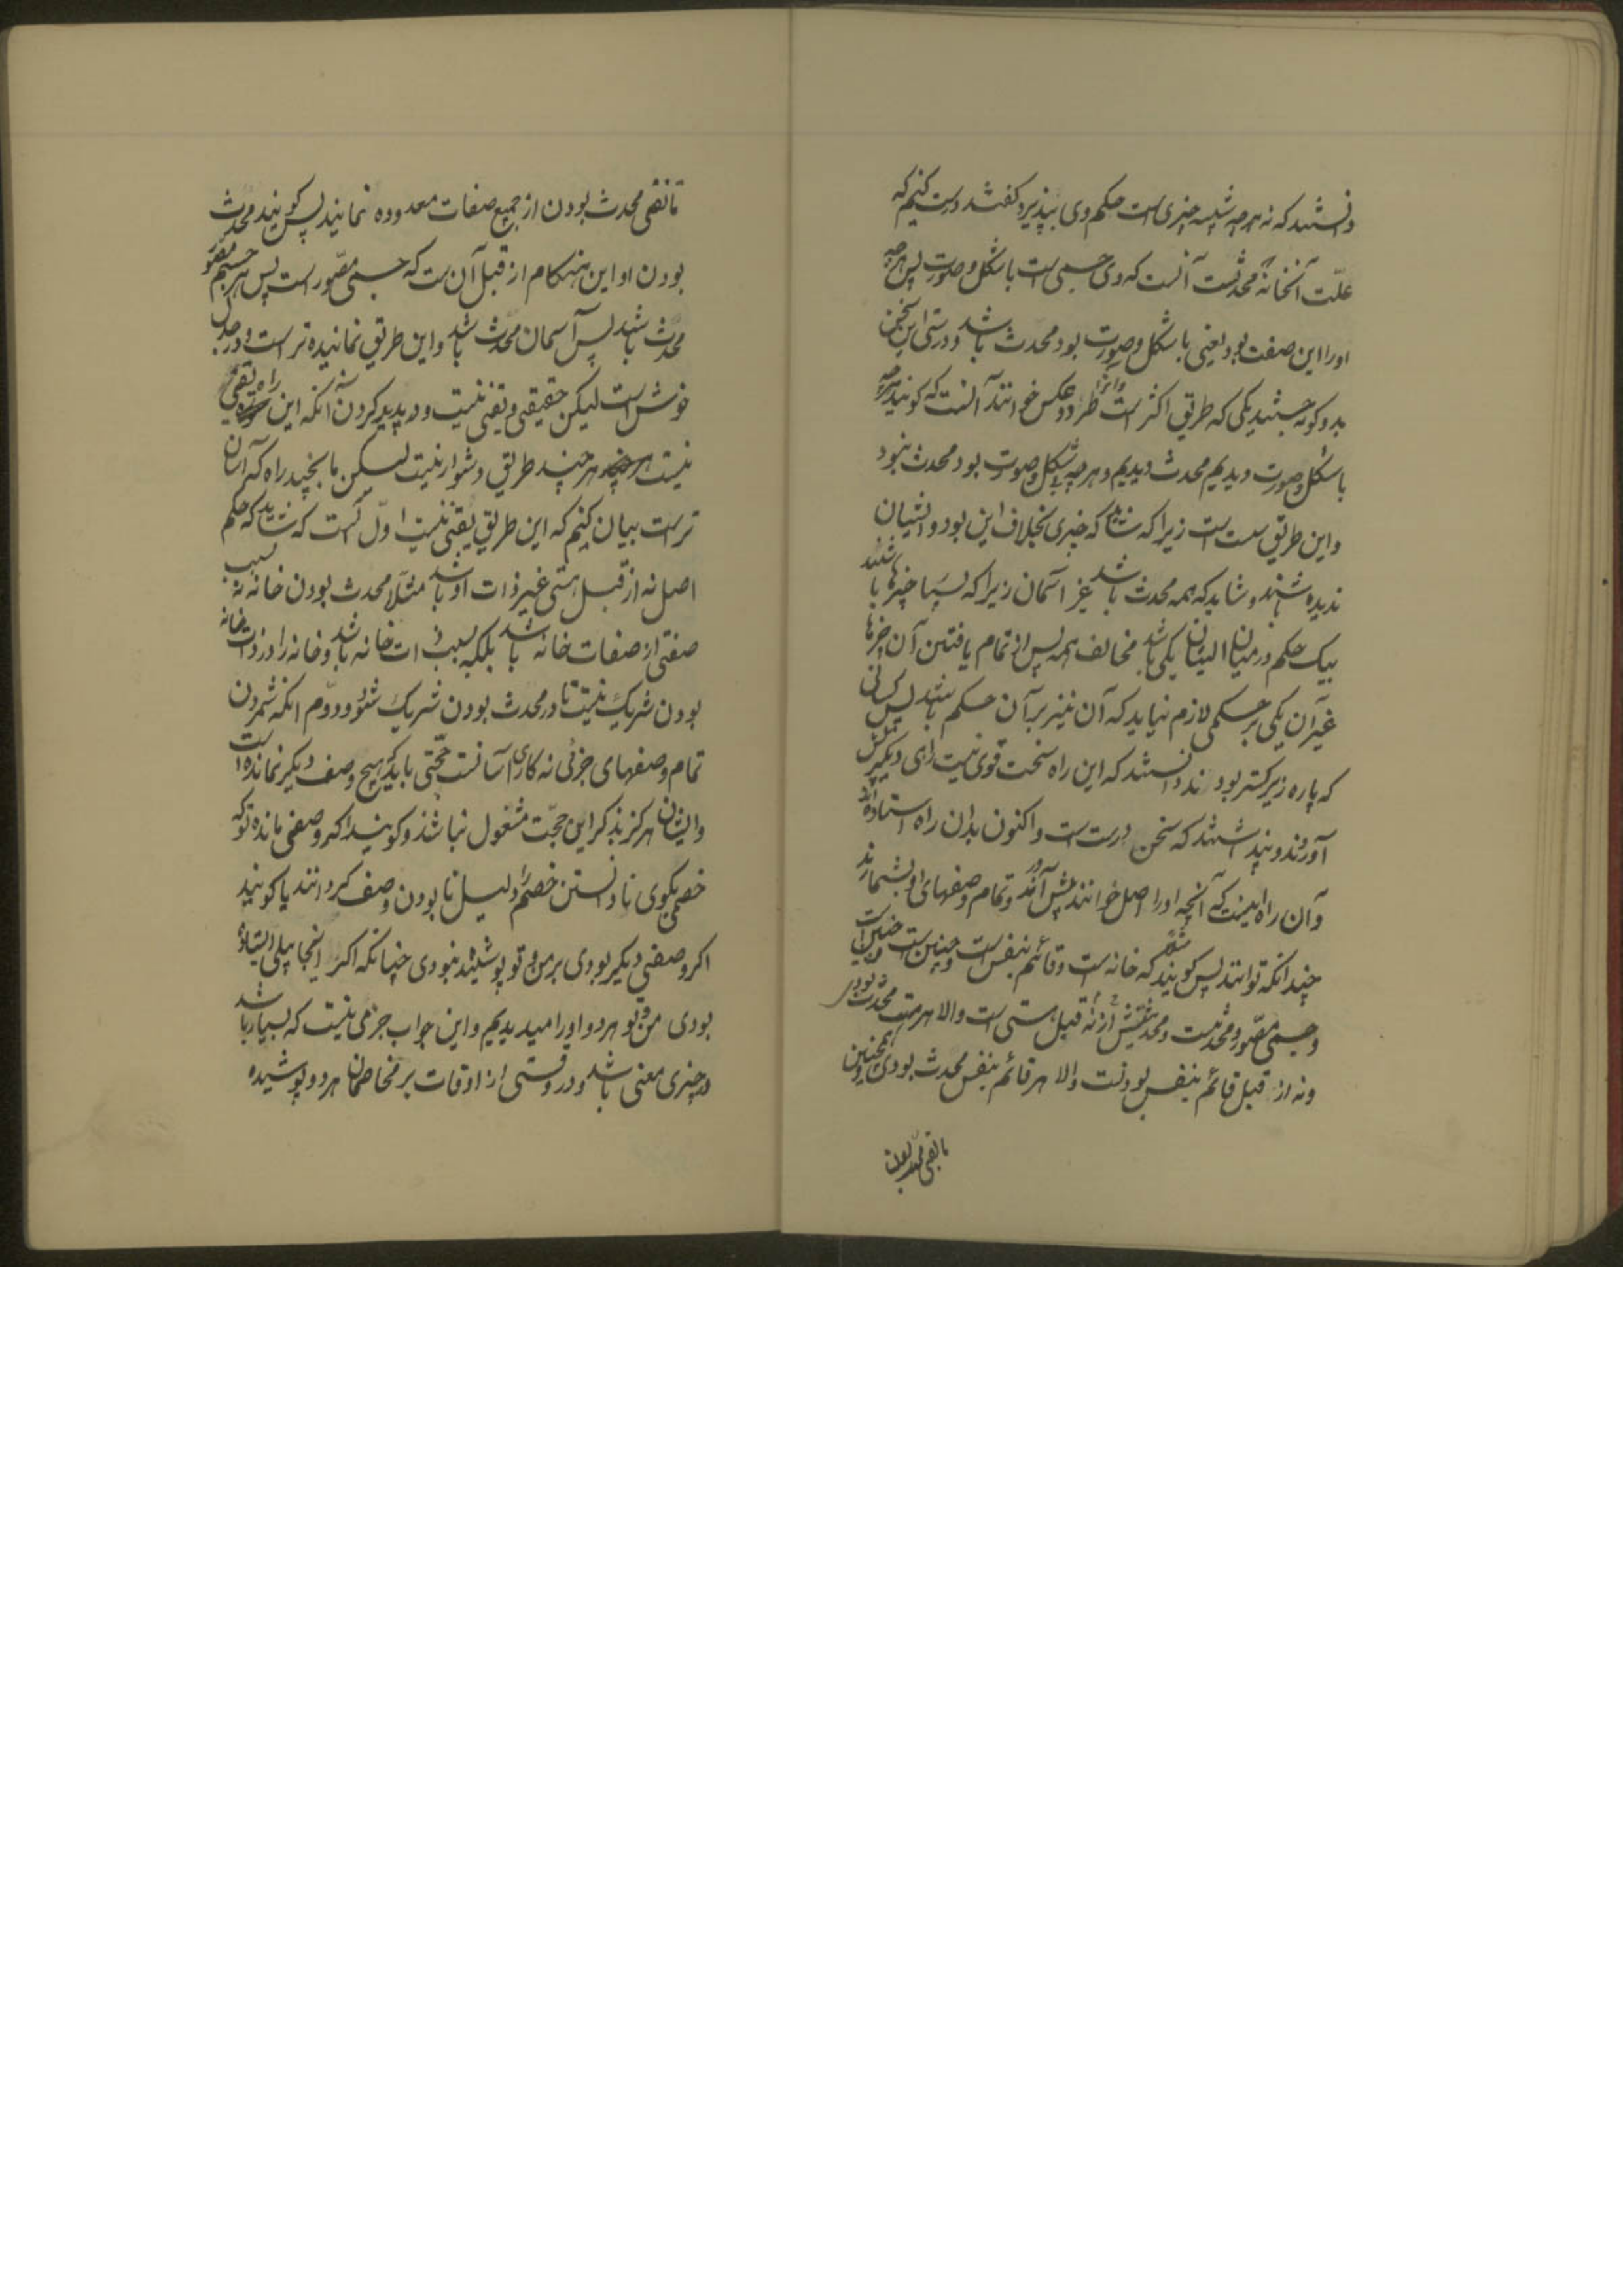 دانستند که نه هرچه شبیه چیزی است حکم وی بپذیرد گفتند درست کنیم که
علّت آنخانه محدثست آنست که وی جسمی است باشکل و صورت پس هرچه
اورا این صفت بود یعنی باشکل و صورت بود محدث باشد و درستی این سخن
بدو گونه جستند یکی که طریق اکثر است و آنرا طرد و عکس خوانند آنست که گویند هرچه
باشکل و صورت دیدیم محدث دیدیم و هرچه بی شکل و صورت بود محدث نبود
و این طریق سست است زیرا که شاید که چیزی بخلاف این بود و ایشان
ندیده باشند و شاید که همه محدث باشد غیر آسمان زیرا که بسیا چیزها باشند
بیک حکم و درمیان ایشان یکی باشد مخالف همه پس از تمام یافتن آن چیزها
غیر آن یکی بر حکمی لازم نیاید که آن نیز بر آن حکم باشد پس کسانی
که پاره زیرکتر بودند دانستند که این راه سخت قوی نیست راهی دیگر پیش
آوردند و پنداشتند که سخن درست است و اکنون بدان راه استاده اند
و آن راه اینست که آنچه اورا اصل خوانند پیش آورند و تمام وصفهای او بشمارند
چندانکه توانند پس گویند مثلا که خانه است و قائم بنفس است و چنین است و چنین است
و جسمی مصوّر و محدثست و محدثیتش نه از قبل هستی است والا هر هست محدث بودی
و نه از قبل قائم بنفس بودنست والا هر قائم بنفس محدث بودی و همچنین
تا نفی محدث بودن
تا نفی محدث بودن از جمیع صفات معدوده نمایند پس گویند محدث
بودن او این هنگام از قبل آن ست که جسمی مصّور است پس هر جسم مصّور
محدث باشد پس آسمان محدث باشد و این طریق نماینده تر است و در جدل
خوش است لیکن حقیقی و یقینی نیست و در پدید کردن آنکه این راه یقینی
نیست هرچند طریق دشوار نیست لیکن ما بچند راه که آسان
تر است بیان کنیم که این طریق یقینی نیست اوّل آنست که شاید که حکم
اصل نه از قبل هستی غیر ذات او باشد مثلا محدث بودن خانه نه بسبب
صفتی از صفات خانه باشد بلکه بسبب ذات خانه باشد و خانه را در ذات خانه
بودن شریک نیست تا در محدث بودن شریک شود و دوم آنکه شمردن
تمام وصفهای جزئی نه کاری آسانست حجّتی باید که هیچ وصف دیگر نمانده است
و ایشان هرگز بذکر این حجّت مشغول نباشند و گویند اگر وصفی مانده تو که
خصمی بگوی نادانستن خصم را دلیل نابودن وصف گردانند یا گویند
اگر وصفی دیگر بودی بر من و تو پوشیده نبودی چنانکه اگر اینجا پیلی ایستاده
بودی من و تو هر دو اورا میدیدیم و این جواب جزمی نیست که بسیار باشد
در چیزی معنی باشد و در وقتی از اوقات بر مخاصمان هر دو پوشیده